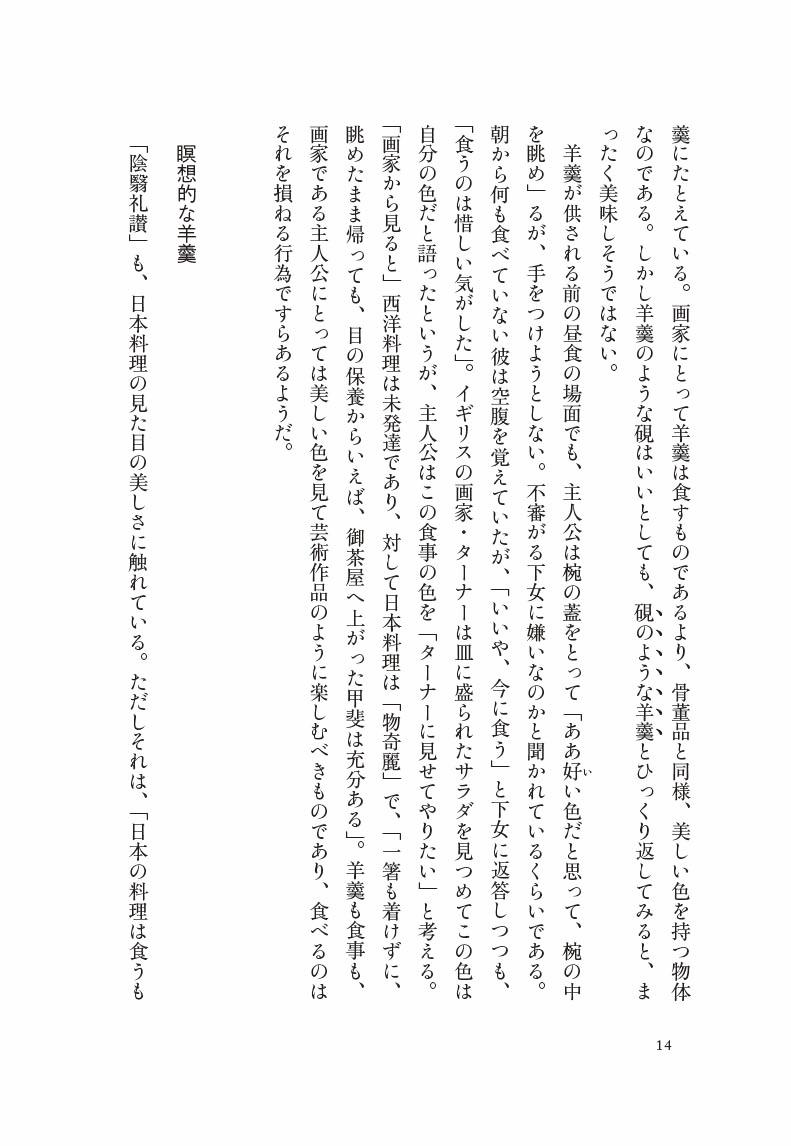 羹にたとえている。画家にとって羊羹は食すものであるより、骨董品と同様、美しい色を持つ物体
なのである。しかし羊羹のような硯はいいとしても、硯のような羊羹とひっくり返してみると、ま
ったく美味しそうではない。
羊羹が供される前の昼食の場面でも、主人公は椀の蓋をとって「ああ好い色だと思って、椀の中
を眺め」るが、手をつけようとしない。不審がる下女に嫌いなのかと聞かれているくらいである。
朝から何も食べていない彼は空腹を覚えていたが、「いいや、今に食う」と下女に返答しつつも、
「食うのは惜しい気がした」。イギリスの画家・ターナーは皿に盛られたサラダを見つめてこの色は
自分の色だと語ったというが、主人公はこの食事の色を「ターナーに見せてやりたい」と考える。
「画家から見ると」西洋料理は未発達であり、対して日本料理は「物奇麗」で、「一箸も着けずに、
眺めたまま帰っても、目の保養からいえば、御茶屋へ上がった甲斐は充分ある」。羊羹も食事も、
画家である主人公にとっては美しい色を見て芸術作品のように楽しむべきものであり、食べるのは
それを損ねる行為ですらあるようだ。
瞑想的な羊羹
「陰翳礼讃」も、日本料理の見た目の美しさに触れている。ただしそれは、「日本の料理は食うも
14